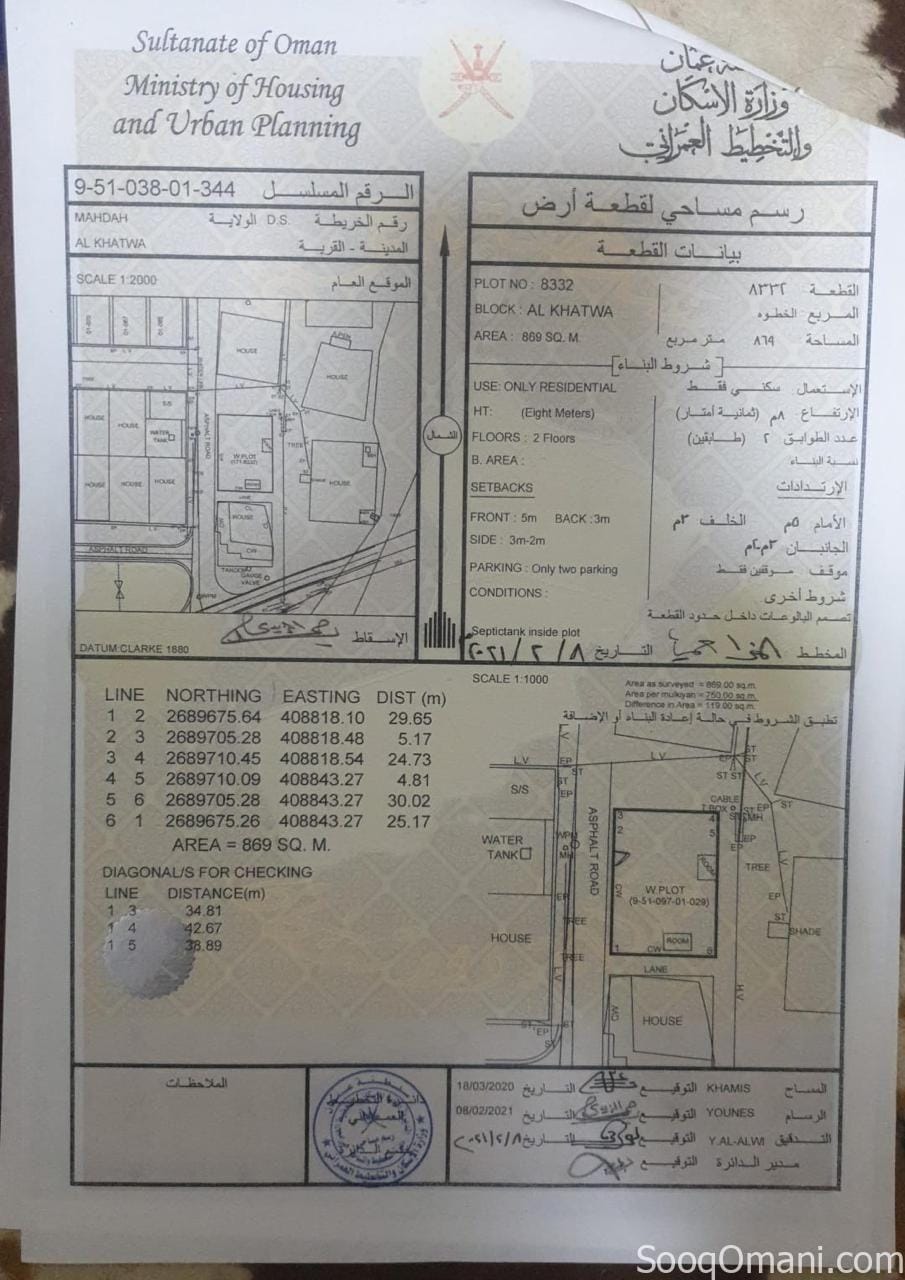 Sultanate of Oman
Ministry of Housing
and Urban Planning
عمان
وزارة الإسكان
والتخطيط العمراني
9-51-038-01-344 الرقم المسلسل
MAHDAH الولاية D.S. رقم الخريطة
AL KHATWA المدينة - القرية
SCALE 1:2000 الموقع العام
HOUSE
HOUSE
L.V
L.V
HOUSE
HOUSE
S/S
WATER
TANK
ASPHALT ROAD
TREE
W.PLOT
HOUSE
HOUSE
HOUSE
HOUSE
LANE
HOUSE
CW
ASPHALT ROAD
TANOOR
GAUGE
VALVE
WPM
DATUM:CLARKE 1880 الإسقاط
الشمال
رسم مساحي لقطعة أرض
بيانات القطعة
PLOT NO : 8332 القطعة ٨٣٣٢
BLOCK : AL KHATWA المربع الخطوه
AREA : 869 SQ. M. المساحة ٨٦٩ متر مربع
شروط البناء
USE: ONLY RESIDENTIAL الإستعمال سكني فقط
HT: (Eight Meters) الإرتفاع ٨م (ثمانية أمتار)
FLOORS : 2 Floors عدد الطوابق ٢ (طابقين)
B. AREA : نسبة البناء
SETBACKS الإرتدادات
FRONT : 5m BACK :3m الأمام ٥م الخلف ٣م
SIDE : 3m-2m الجانبان ٣م-٢م
PARKING : Only two parking موقف موقفين فقط
CONDITIONS : شروط أخرى
تصمم البالوعات داخل حدود القطعة
Septictank inside plot
المخطط التاريخ ٢٠٢١/٢/٨
LINE NORTHING EASTING DIST (m)
1 2 2689675.64 408818.10 29.65
2 3 2689705.28 408818.48 5.17
3 4 2689710.45 408818.54 24.73
4 5 2689710.09 408843.27 4.81
5 6 2689705.28 408843.27 30.02
6 1 2689675.26 408843.27 25.17
AREA = 869 SQ. M.
DIAGONAL/S FOR CHECKING
LINE DISTANCE(m)
1 3 34.81
1 4 42.67
1 5 38.89
SCALE 1:1000
Area as surveyed = 869.00 sq.m.
Area per mulkiyah = 750.00 sq.m.
Difference in Area = 119.00 sq.m.
تطبق الشروط في حالة إعادة البناء أو الإضافة
L.V
EP
ST
L.V
ST
EP ST
ST ST
L.V
S/S
ST
EP
CABLE
T.BOX
ST MH
EP
ST
WATER
TANK
WPM
MH
ASPHALT ROAD
3
2
4
5
EP
EP
ROOM
TREE
L.V
W.PLOT
(9-51-097-01-029)
CW
EP
EP
ST
SHADE
TREE
HOUSE
1 CW ROOM 6
TREE
LANE
L.V
H.V
HOUSE
ST
EP
ST
ST
الملاحظات
18/03/2020 التاريخ التوقيع KHAMIS المساح
08/02/2021 التاريخ التوقيع YOUNES الرسام
٢٠٢١/٢/٨ التاريخ التوقيع Y.AL-ALWI التدقيق
التوقيع مدير الدائرة
SooqOmani.com